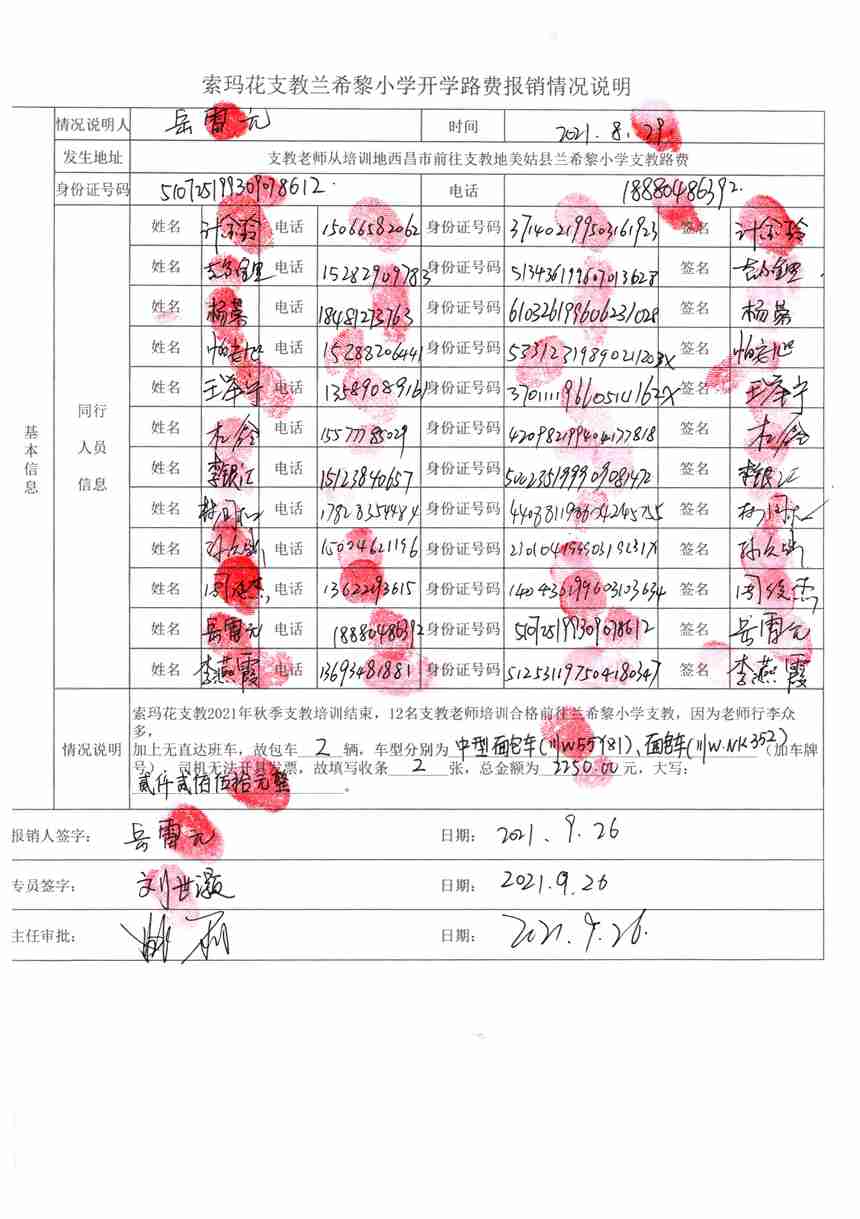 索玛花支教兰希黎小学开学路费报销情况说明
情况说明人 岳雷元 时间 2021.8.29.
发生地址 支教老师从培训地西昌市前往支教地美姑县兰希黎小学支教路费
身份证号码 510725199309078612. 电话 18880486392.
基本信息
同行
人员
信息
姓名 计余玲 电话 15066582062 身份证号码 371402199503161923 签名 计余玲
姓名 电话 15282909783 身份证号码 513436199607013627 签名
姓名 杨慕 电话 18481273763 身份证号码 610326199606231028 签名 杨慕
姓名 电话 15288206441 身份证号码 签名
姓名 王泽宇 电话 13589089161 身份证号码 签名 王泽宇
姓名 电话 15577785029 身份证号码 420982199404177818 签名
姓名 李银江 电话 15123840657 身份证号码 500235199909081472 签名 李银江
姓名 电话 身份证号码 签名
姓名 电话 15034621196 身份证号码 签名
姓名 周俊杰 电话 13622093615 身份证号码 140436199603103634 签名 周俊杰
姓名 岳雷元 电话 18880486392 身份证号码 510725199309078612 签名 岳雷元
姓名 李燕霞 电话 13693481881 身份证号码 512531197504180347 签名 李燕霞
情况说明
索玛花支教2021年秋季支教培训结束，12名支教老师培训合格前往兰希黎小学支教，因为老师行李众
多，
加上无直达班车，故包车 2 辆，车型分别为 中型面包车(川W55Y81)、面包车(川W·NK352) （加车牌
号），司机无法开具发票，故填写收条 2 张，总金额为 2250.00 元，大写：
贰仟贰佰伍拾元整 。
报销人签字： 岳雷元 日期： 2021.9.26
专员签字： 刘世灏 日期： 2021.9.26
主任审批： 日期： 2021.9.26.